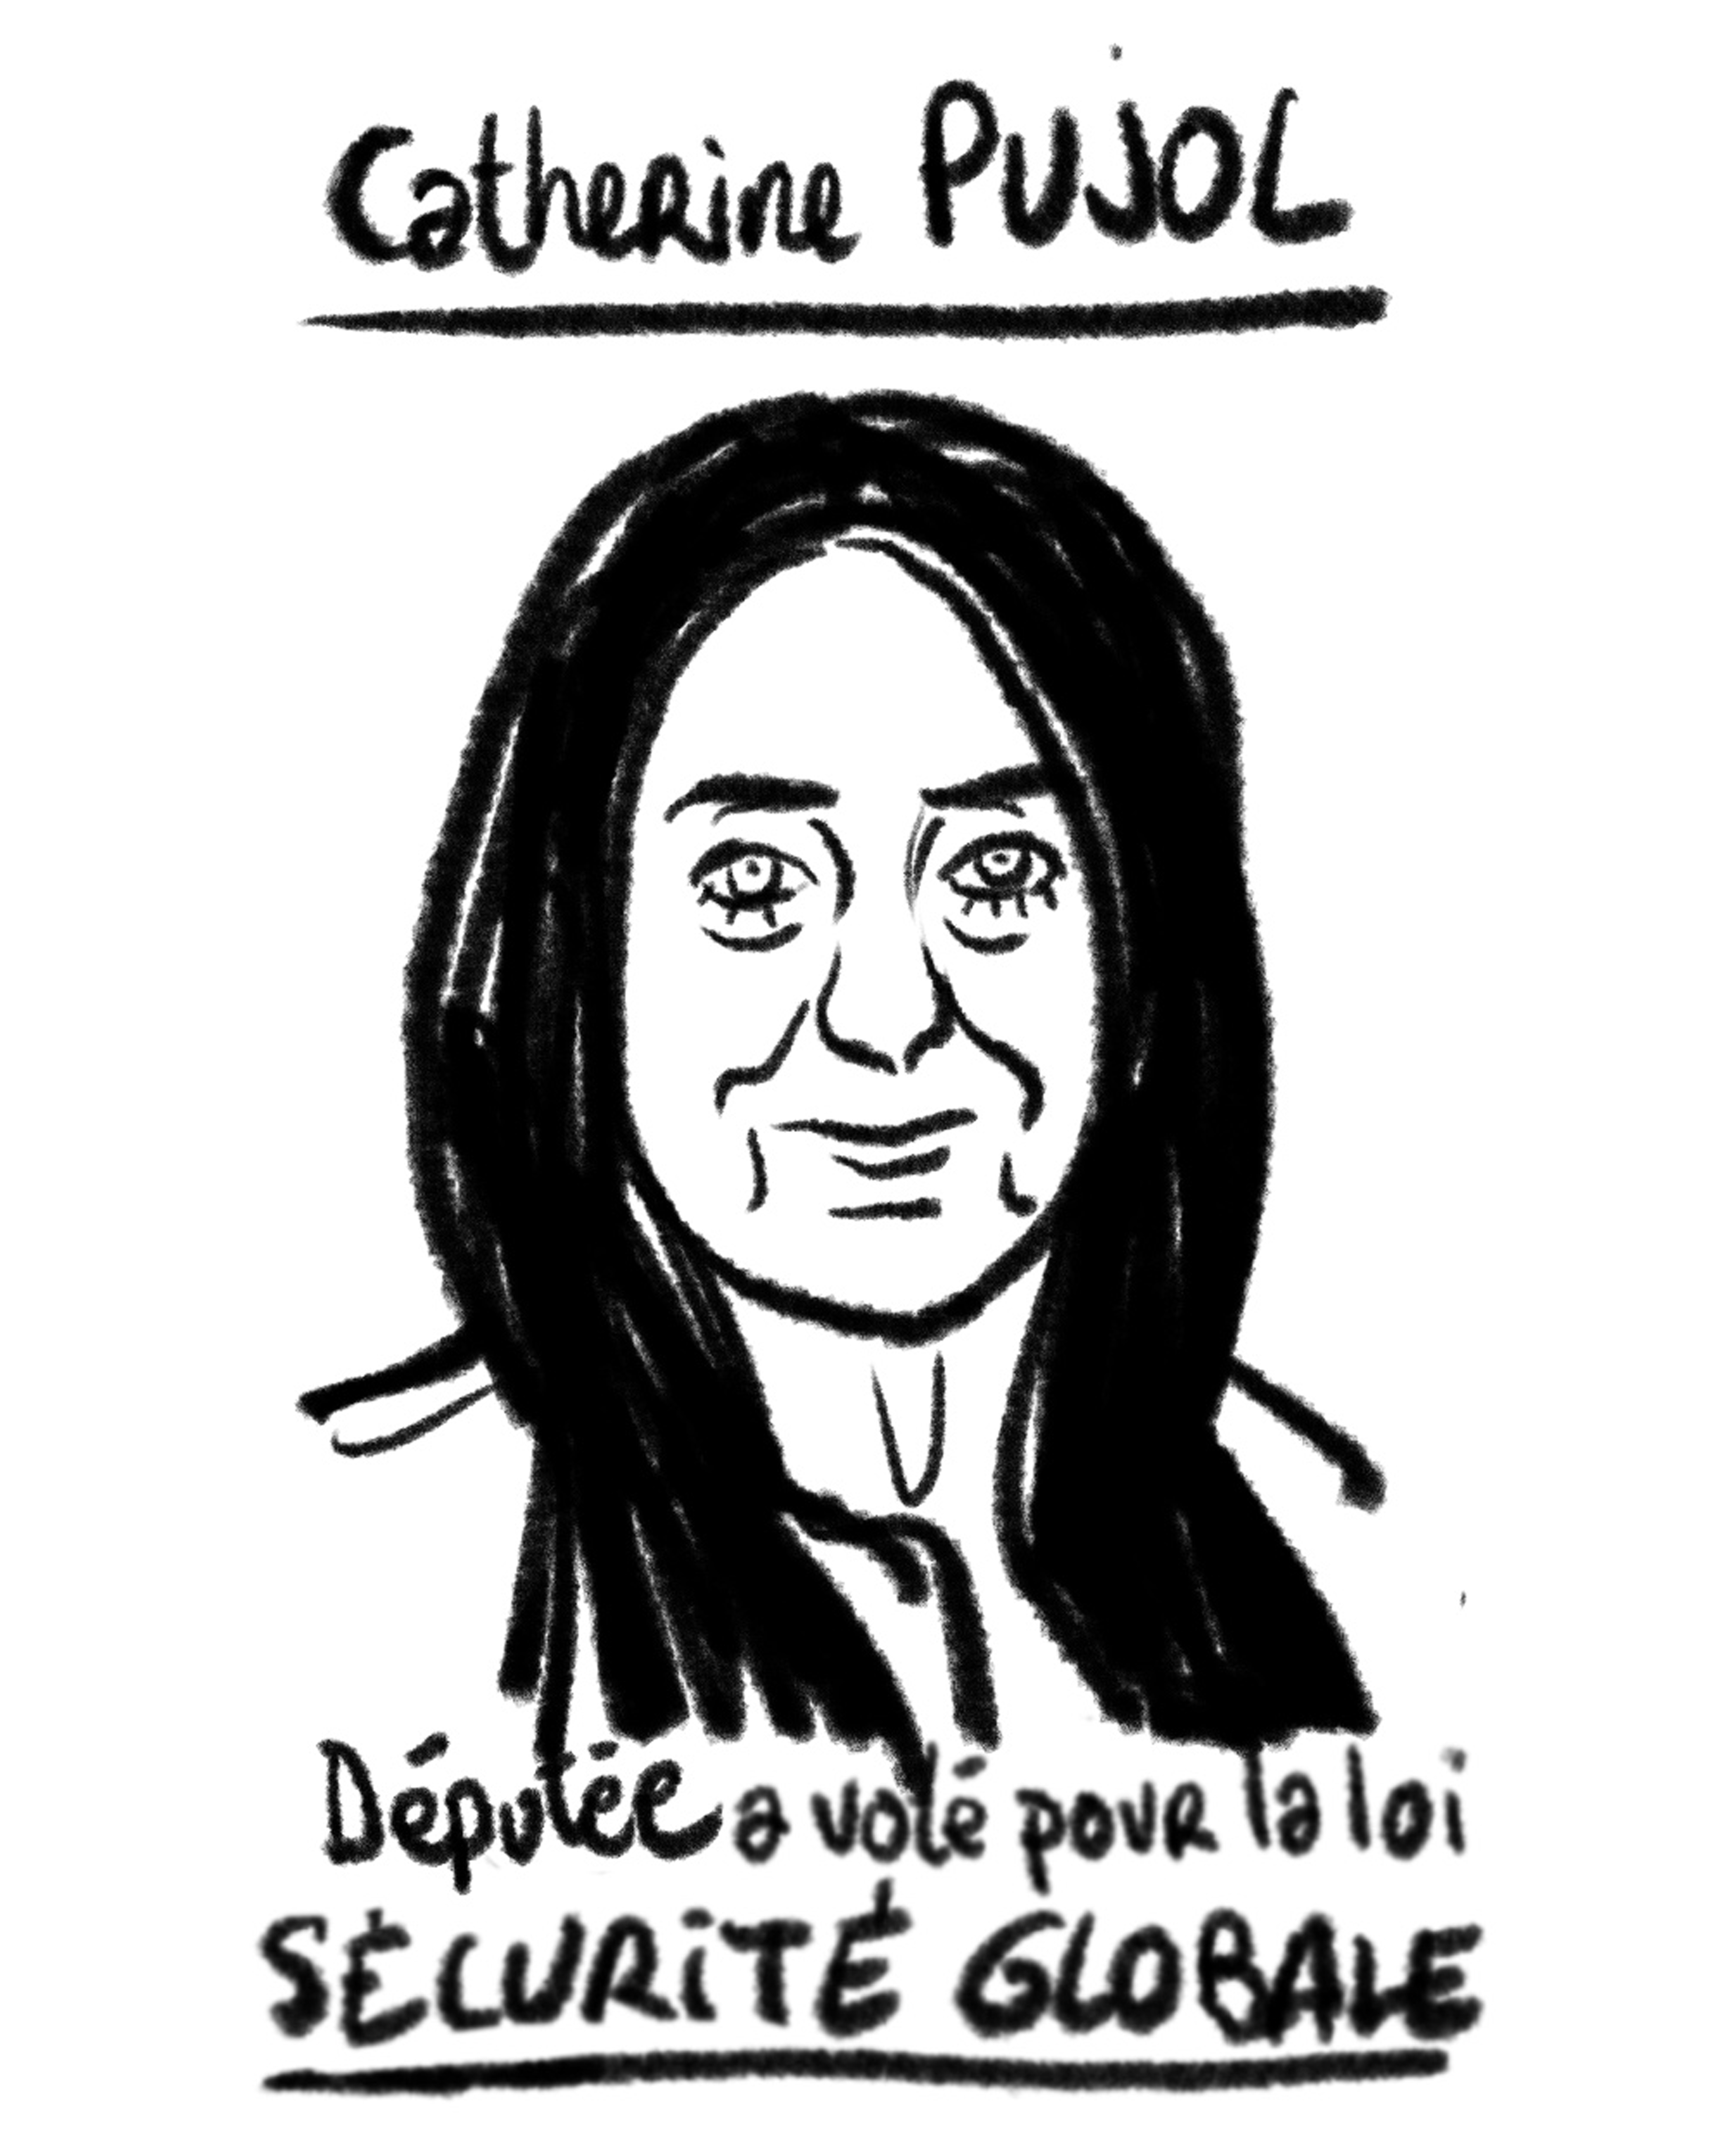 Catherine PUJOL
Députée a voté pour la loi
SÉCURITÉ GLOBALE